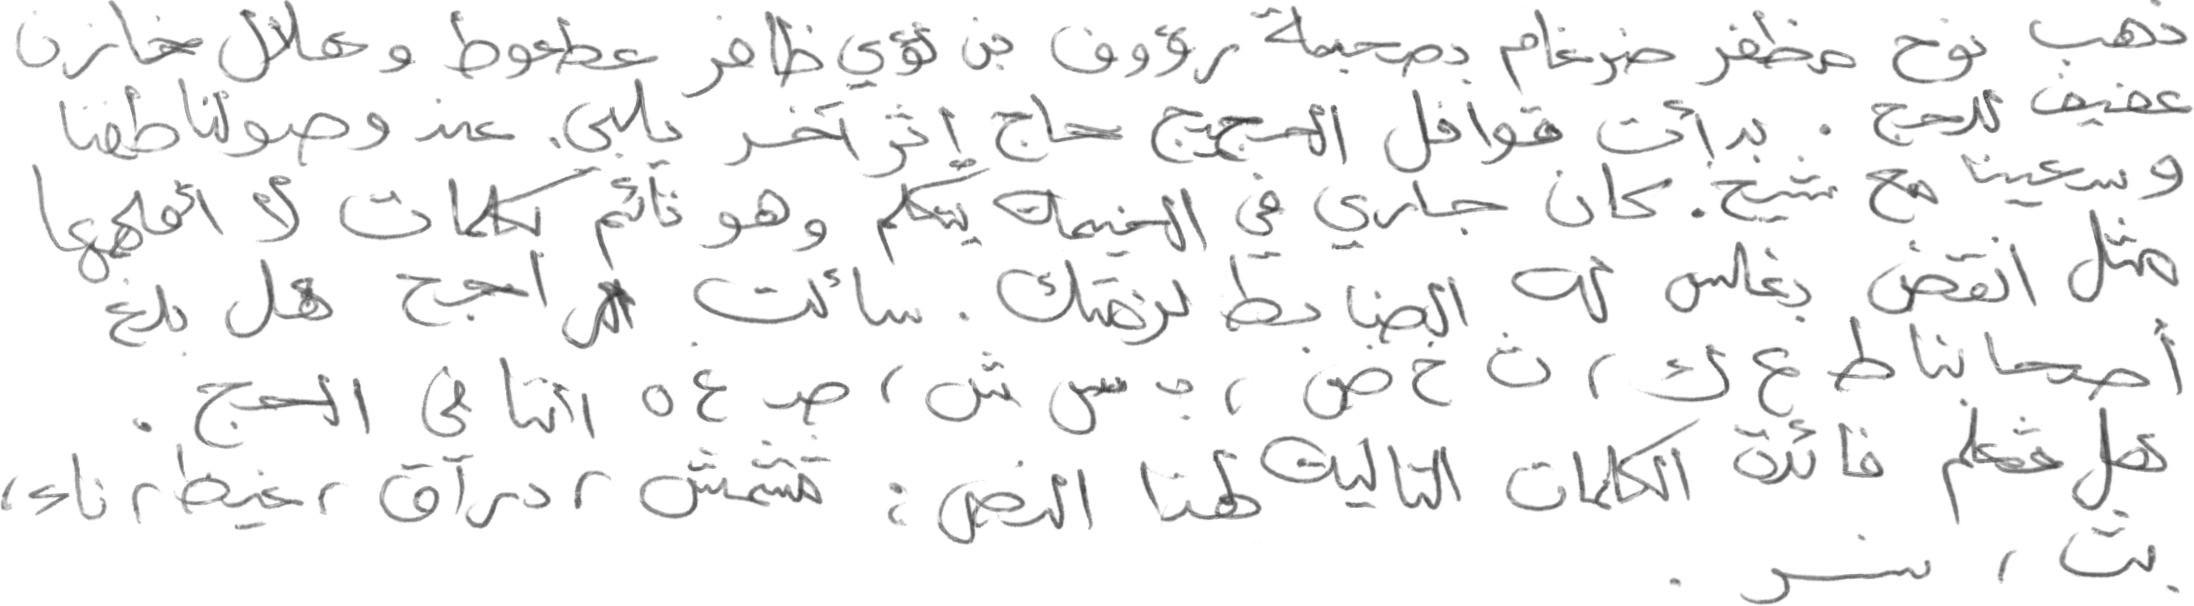 ذهب نوح مظفر ضرغام بصحبة رؤوف بن لؤي ظافر عطعوط وهلال خازن
عفيف للحج . بدأت قوافل الحجيج حاج إثر آخر يلبي. عند وصولنا طفنا
وسعينا مع شيخ. كان جاري في الخيمة يتكلم وهو نائم بكلمات لا أفهمها
مثل انقض بغلس له الضابط لزقتك . سألت الراجح هل بلغ
أصحابنا ط ع ك ، ث خ ض ، ب س ش ، ص غ ه اننا في الحج .
هل تعلم فائدة الكلمات التالية لهذا النص : مشمش ، دراق ، غيظ ، ناء ،
بث ، سنر .